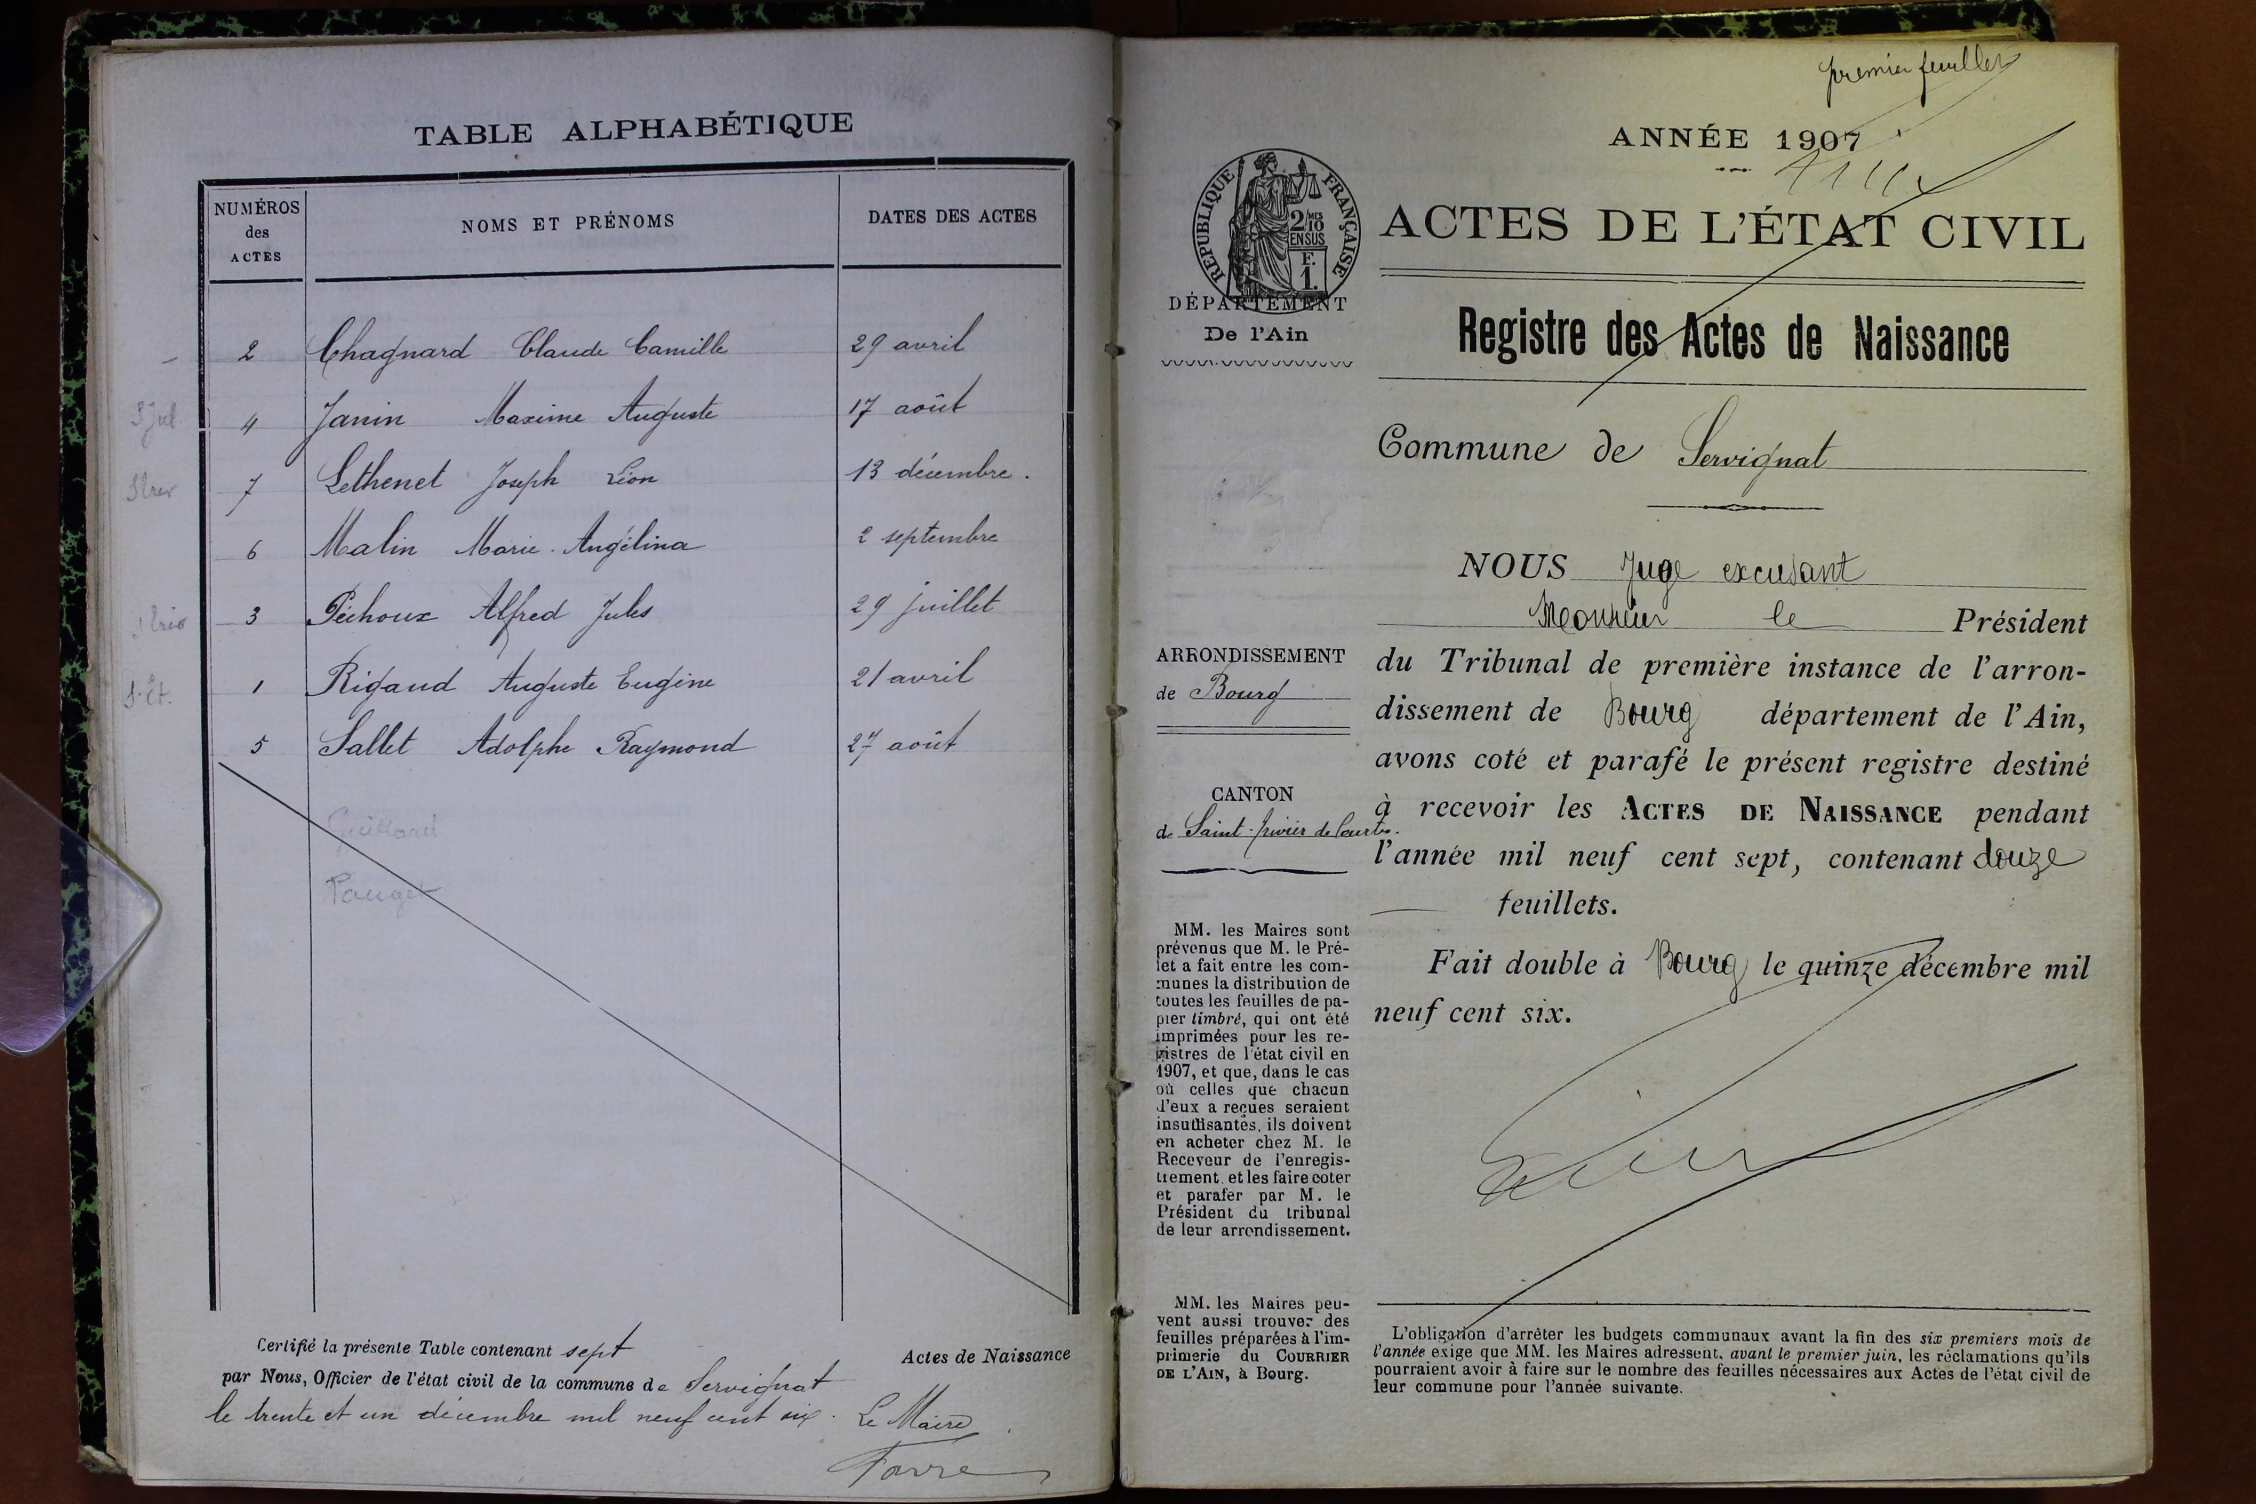 TABLE ALPHABÉTIQUE
NUMÉROS
des
ACTES
NOMS ET PRÉNOMS
DATES DES ACTES
2 Chagnard Claude Camille 29 avril
4 Janin Maxime Auguste 17 août
7 Lethenet Joseph Léon 13 décembre.
6 Malin Marie-Angélina 2 septembre
3 Péchoux Alfred Jules 29 juillet
1 Rigaud Auguste Eugène 21 avril
5 Sallet Adolphe Raymond 27 août
Guillard
Pauget
Certifié la présente Table contenant sept Actes de Naissance
par Nous, Officier de l'état civil de la commune de Servignat
le trente et un décembre mil neuf cent six. Le Maire
Favre
premier feuillet
ANNÉE 1907
RÉPUBLIQUE FRANÇAISE
2/MES
10
EN SUS
F.
1.
ACTES DE L'ÉTAT CIVIL
DÉPARTEMENT
De l'Ain
Registre des Actes de Naissance
Commune de Servignat
NOUS Juge excusant
Monsieur le Président
ARRONDISSEMENT
de Bourg
du Tribunal de première instance de l'arron-
dissement de Bourg département de l'Ain,
avons coté et parafé le présent registre destiné
à recevoir les ACTES DE NAISSANCE pendant
l'année mil neuf cent sept, contenant douze
feuillets.
CANTON
de Saint-Trivier de Courtes.
Fait double à Bourg le quinze décembre mil
neuf cent six.
MM. les Maires sont
prévenus que M. le Pré-
fet a fait entre les com-
munes la distribution de
toutes les feuilles de pa-
pier timbré, qui ont été
imprimées pour les re-
gistres de l'état civil en
1907, et que, dans le cas
où celles que chacun
d'eux a reçues seraient
insuffisantes, ils doivent
en acheter chez M. le
Receveur de l'enregis-
trement, et les faire coter
et parafer par M. le
Président du tribunal
de leur arrondissement.
MM. les Maires peu-
vent aussi trouver des
feuilles préparées à l'im-
primerie du COURRIER
DE L'AIN, à Bourg.
L'obligation d'arrêter les budgets communaux avant la fin des six premiers mois de
l'année exige que MM. les Maires adressent, avant le premier juin, les réclamations qu'ils
pourraient avoir à faire sur le nombre des feuilles nécessaires aux Actes de l'état civil de
leur commune pour l'année suivante.